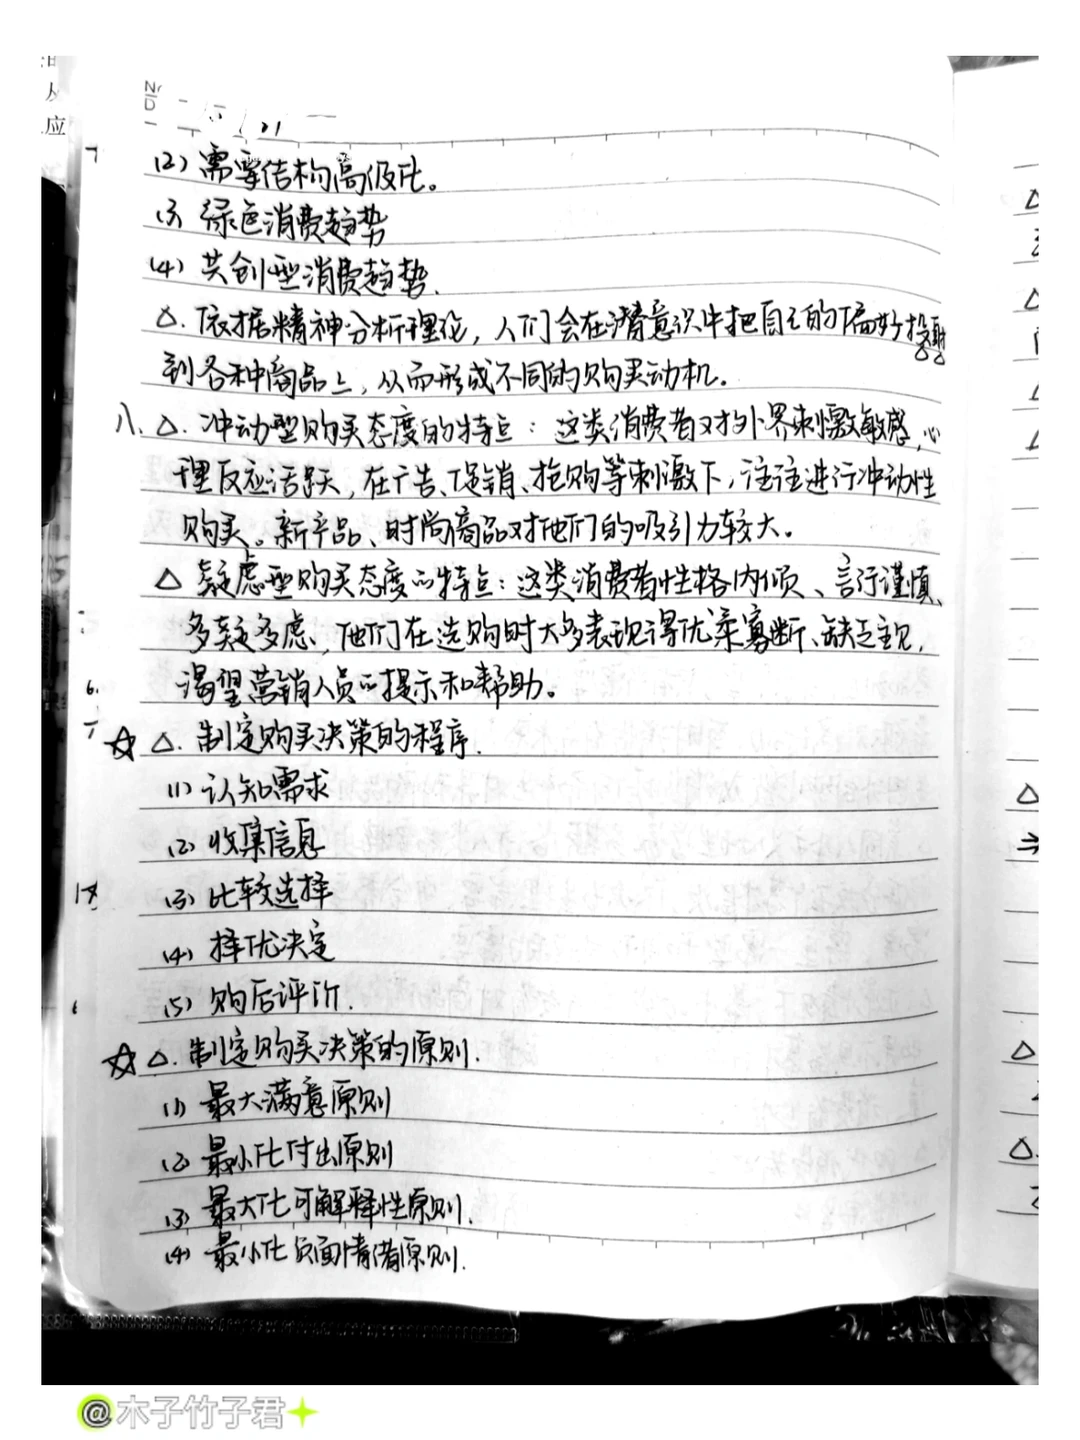 应
(2) 需要结构高级化。
(3) 绿色消费趋势
(4) 共创型消费趋势.
△. 依据精神分析理论，人们会在潜意识中把自己的偏好投射
到各种商品上，从而形成不同的购买动机。
八、△. 冲动型购买态度的特点：这类消费者对外界刺激敏感，心
理反应活跃，在广告、促销、抢购等刺激下，往往进行冲动性
购买。新产品、时尚商品对他们的吸引力较大。
△ 疑虑型购买态度的特点：这类消费者性格内倾、言行谨慎、
多疑多虑、他们在选购时大多表现得优柔寡断、缺乏主见，
渴望营销人员的提示和帮助。
☆ △. 制定购买决策的程序.
(1) 认知需求
(2) 收集信息
(3) 比较选择
(4) 择优决定
(5) 购后评价.
☆ △. 制定购买决策的原则.
(1) 最大满意原则
(2) 最小化付出原则
(3) 最大化可解释性原则.
(4) 最小化负面情绪原则.
@木子竹子君